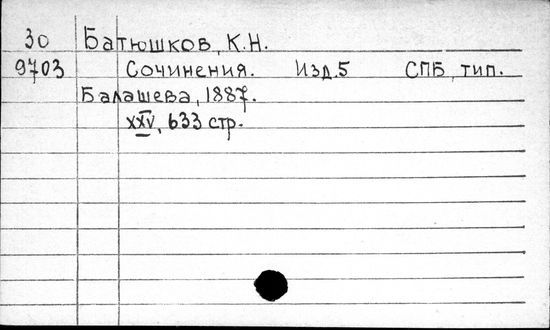 30 Батюшков, К.Н.
9703 Сочинения. Изд.5 СПБ, тип.
Балашева, 1887.
XXV, 633 стр.